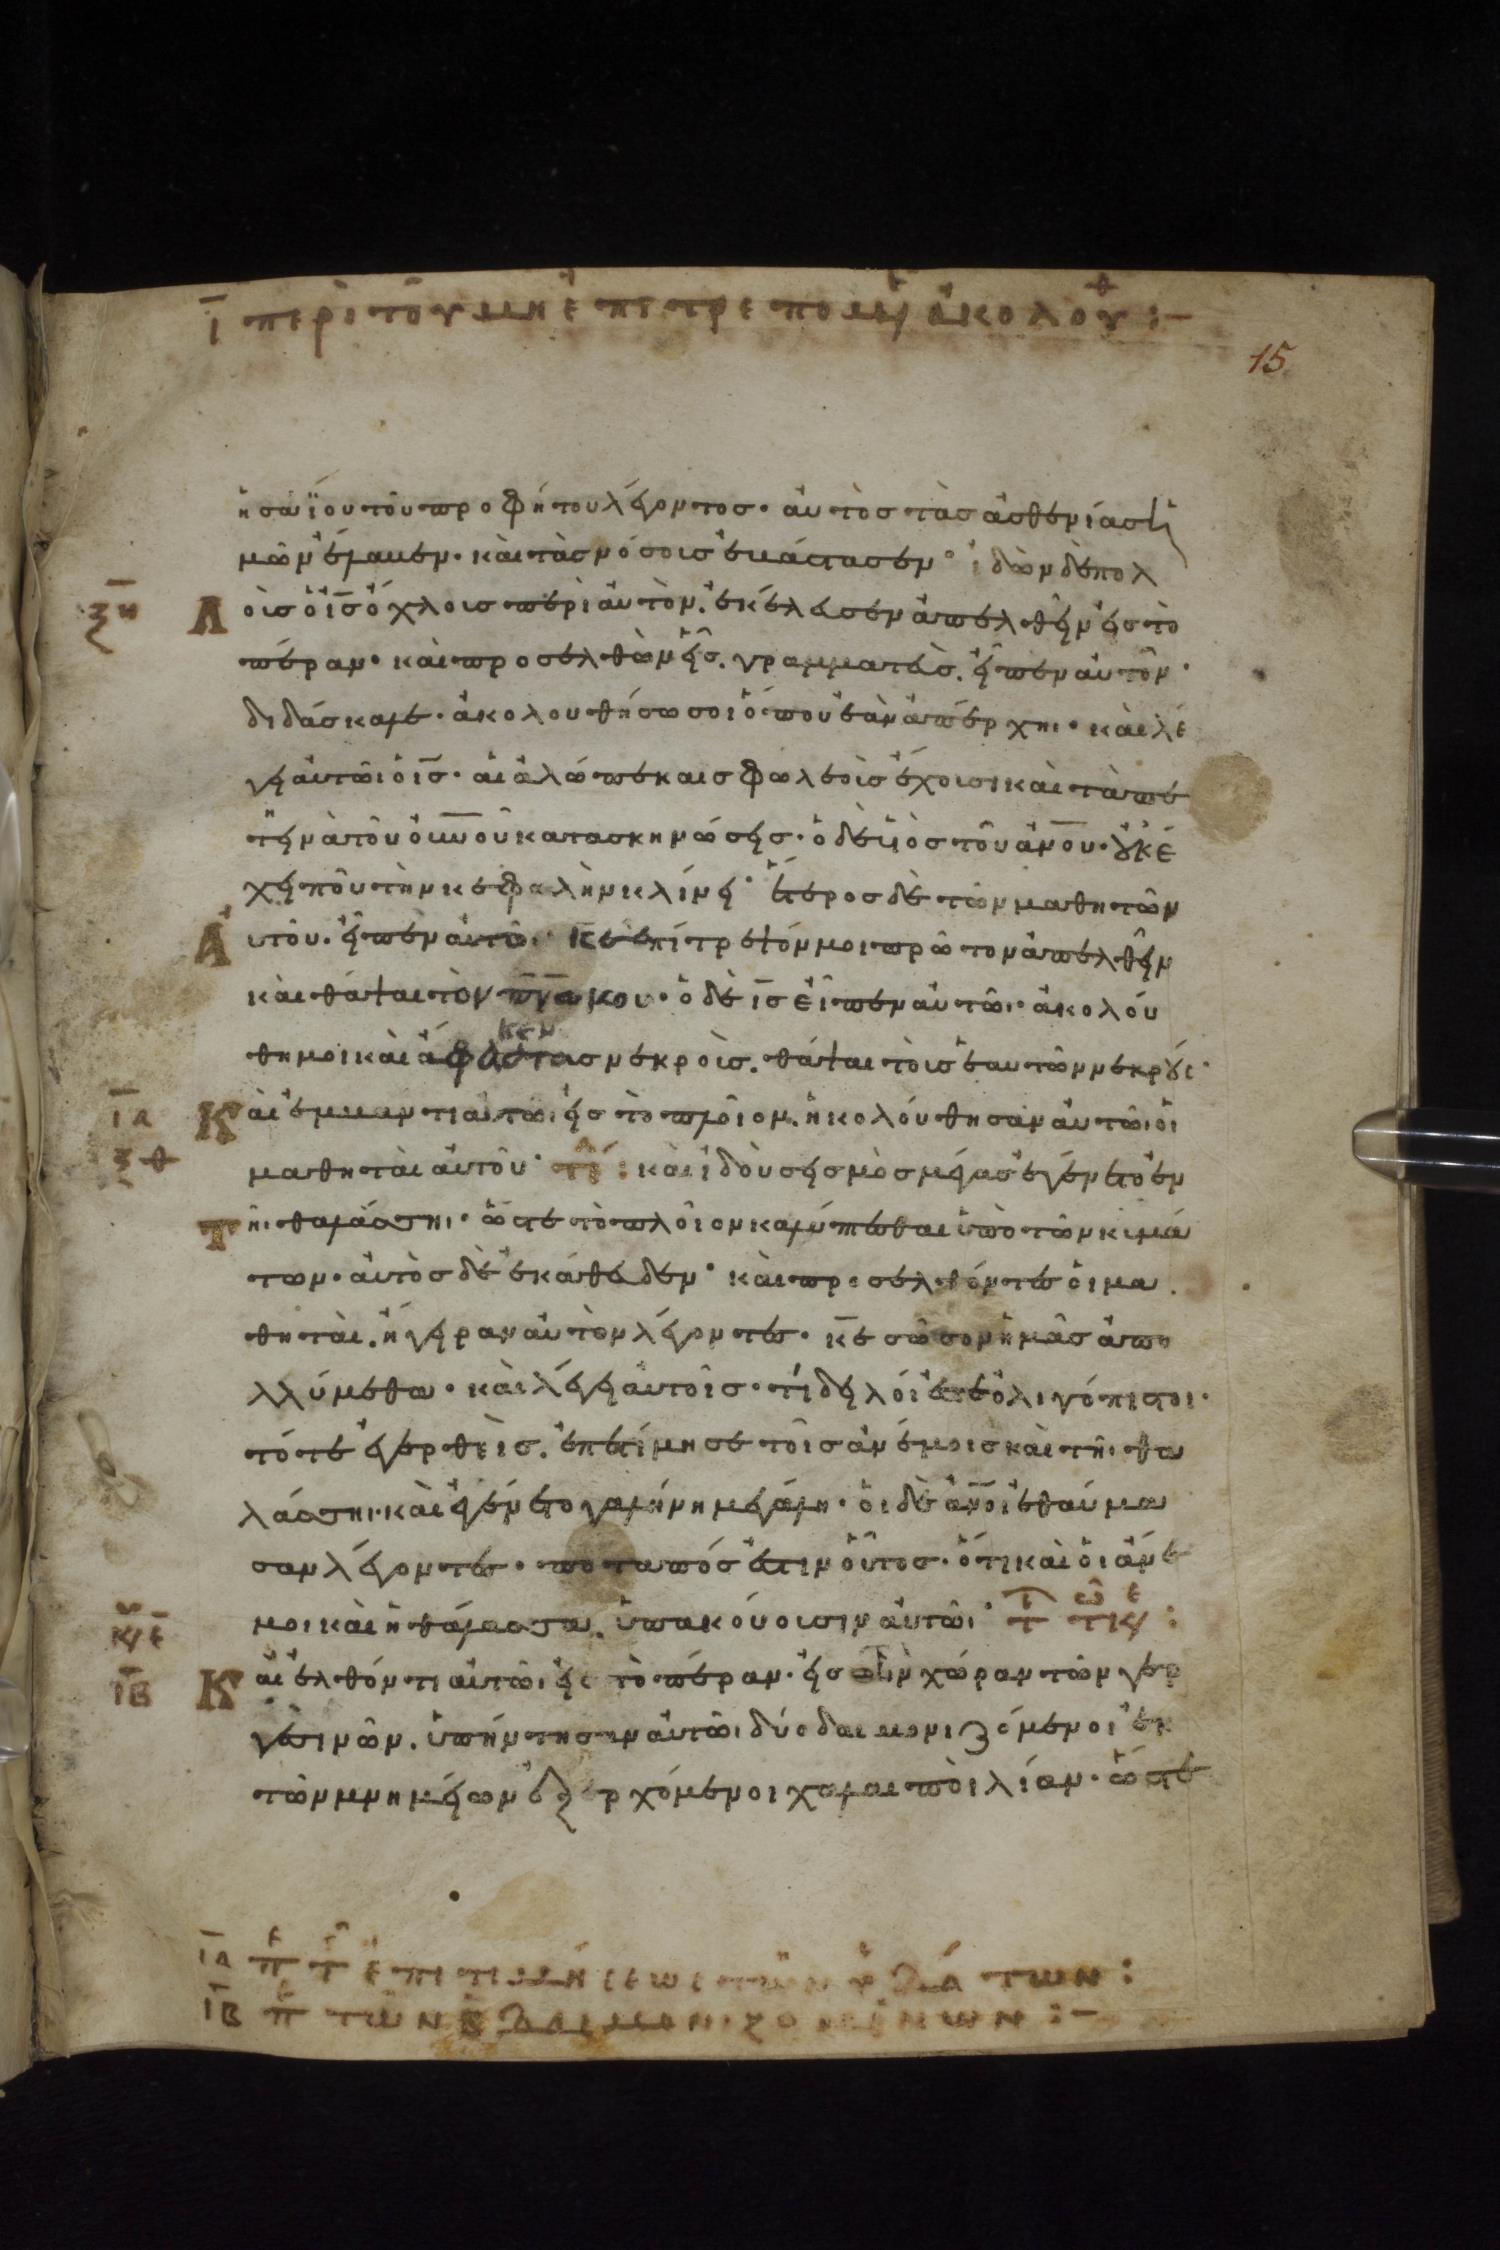 Ι περὶ τοῦ μὴ ἐπιτρεπομ ἀκολου :-
15
ησαΐου τοῦ προφήτου λέγοντος · αὐτὸς τὰς ἀσθενίας ἡ
μῶν ἔλαβεν · καὶ τὰς νόσους ἐβάστασεν · ἰδὼν δὲ πολ
ξη
Λ οὺς ὁ ις ὄχλους περὶ αὐτὸν. ἐκέλευσεν ἀπελθεῖν εἰς τὸ
πέραν · καὶ προσελθὼν εἷς. γραμματεὺς. εἶπεν αὐτῶ ·
διδάσκαλε · ἀκολουθήσω σοι ὅπου ἐὰν ἀπέρχηι · καὶ λέ
γει αὐτῶι ὁ ις · αἱ ἀλώπεκαις φωλεοὺς ἔχουσι καὶ τὰ πε
τηνὰ τοῦ οὐνοῦ κατασκηνώσεις · ὁ δὲ υἱὸς τοῦ ἀνου · οὐκ ἔ
χει ποῦ τὴν κεφαλὴν κλίνει · ἕτερος δὲ τῶν μαθητῶν
Α υτοῦ · εἶπεν αὐτῶ · κε ἐπίτρεψόν μοι πρῶτον ἀπελθεῖν
καὶ θάψαι τὸν πρα μου · ὁ δὲ ις εἶπεν αὐτῶι · ἀκολού
θη μοι καὶ ἄφες τους νεκροὺς. θάψαι τοὺς ἑαυτῶν νεκρούς ·
ΙΑ
Κ αὶ ἐμβάντι αὐτῶι εἰς τὸ πλοῖον. ἠκολούθησαν αὐτῶι οἱ
ξθ
μαθηταὶ αὐτοῦ · : καὶ ἰδοὺ σεισμὸς μέγας ἐγένετο ἐν
τ ῆι θαλάσσηι · ὥστε τὸ πλοῖον καλύπτεσθαι ὑπὸ τῶν κυμά
των · αὐτὸς δὲ ἐκάθευδεν · καὶ προσελθόντες οἱ μα
θηταὶ. ἤγειραν αὐτὸν λέγοντες · κε σῶσον ἡμᾶς ἀπο
λλύμεθα · καὶ λέγει αὐτοῖς · τί δειλοί ἐστε ὀλιγόπιστοι ·
τότε ἐγερθεὶς. ἐπετίμησε τοῖς ἀνέμοις καὶ τῆι θα
λάσσηι · καὶ ἐγένετο γαλήνη μεγάλη · οἱ δὲ ἀνοι ἐθαύμα
σαν λέγοντες · ποταπός ἐστιν οὗτος · ὅτι καὶ οἱ ἄνε
μοι καὶ ἡ θάλασσα. ὑπακούουσιν αὐτῶι ·
ΙΒ
Κ αὶ ἐλθόντι αὐτῶι εἰς τὸ πέραν · εἰς τὴν χώραν τῶν γερ
γεσινῶν. ὑπήντησαν αὐτῶι δύο δαιμονιζόμενοι ἐκ
τῶν μνημείων ἐξερχόμενοι χαλαιποὶ λίαν · ὥστε
ΙΑ π τ ἐπιτιμήσεως τῶν ὑδάτων :
ΙΒ π τῶν Β δαιμονιζομένων :-